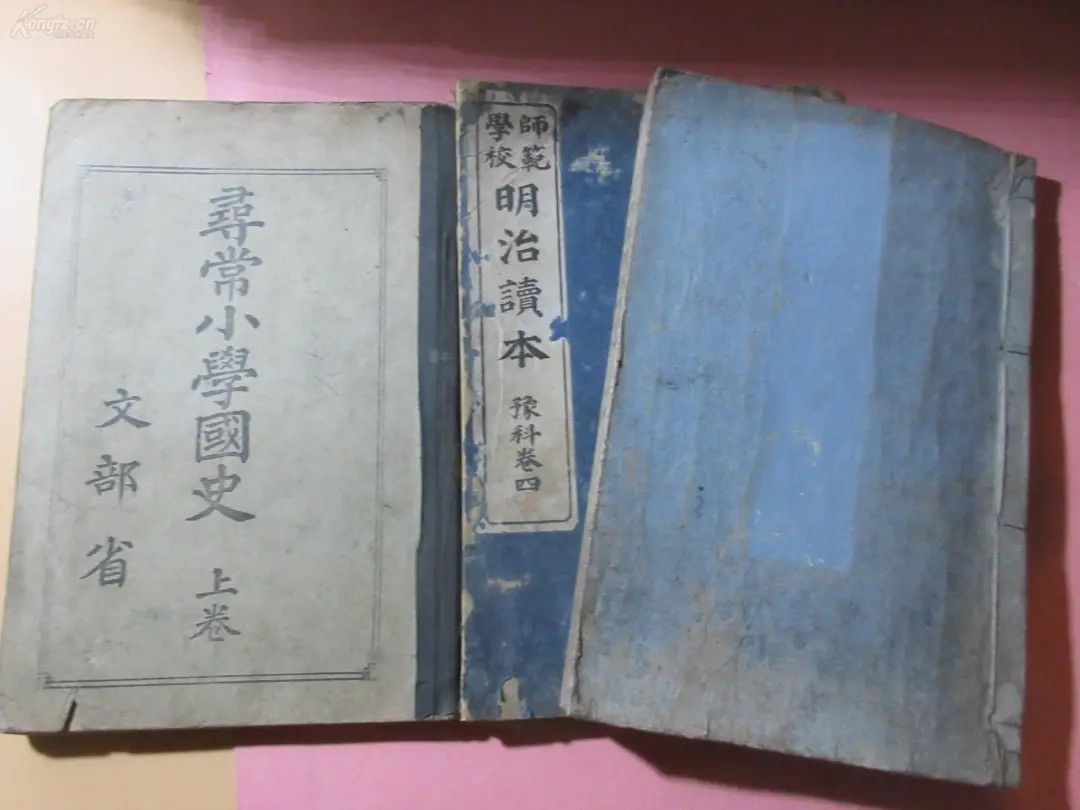 Kongfz.cn
尋常小學國史 上卷
文部省
師範
學校
明治讀本 豫科卷四